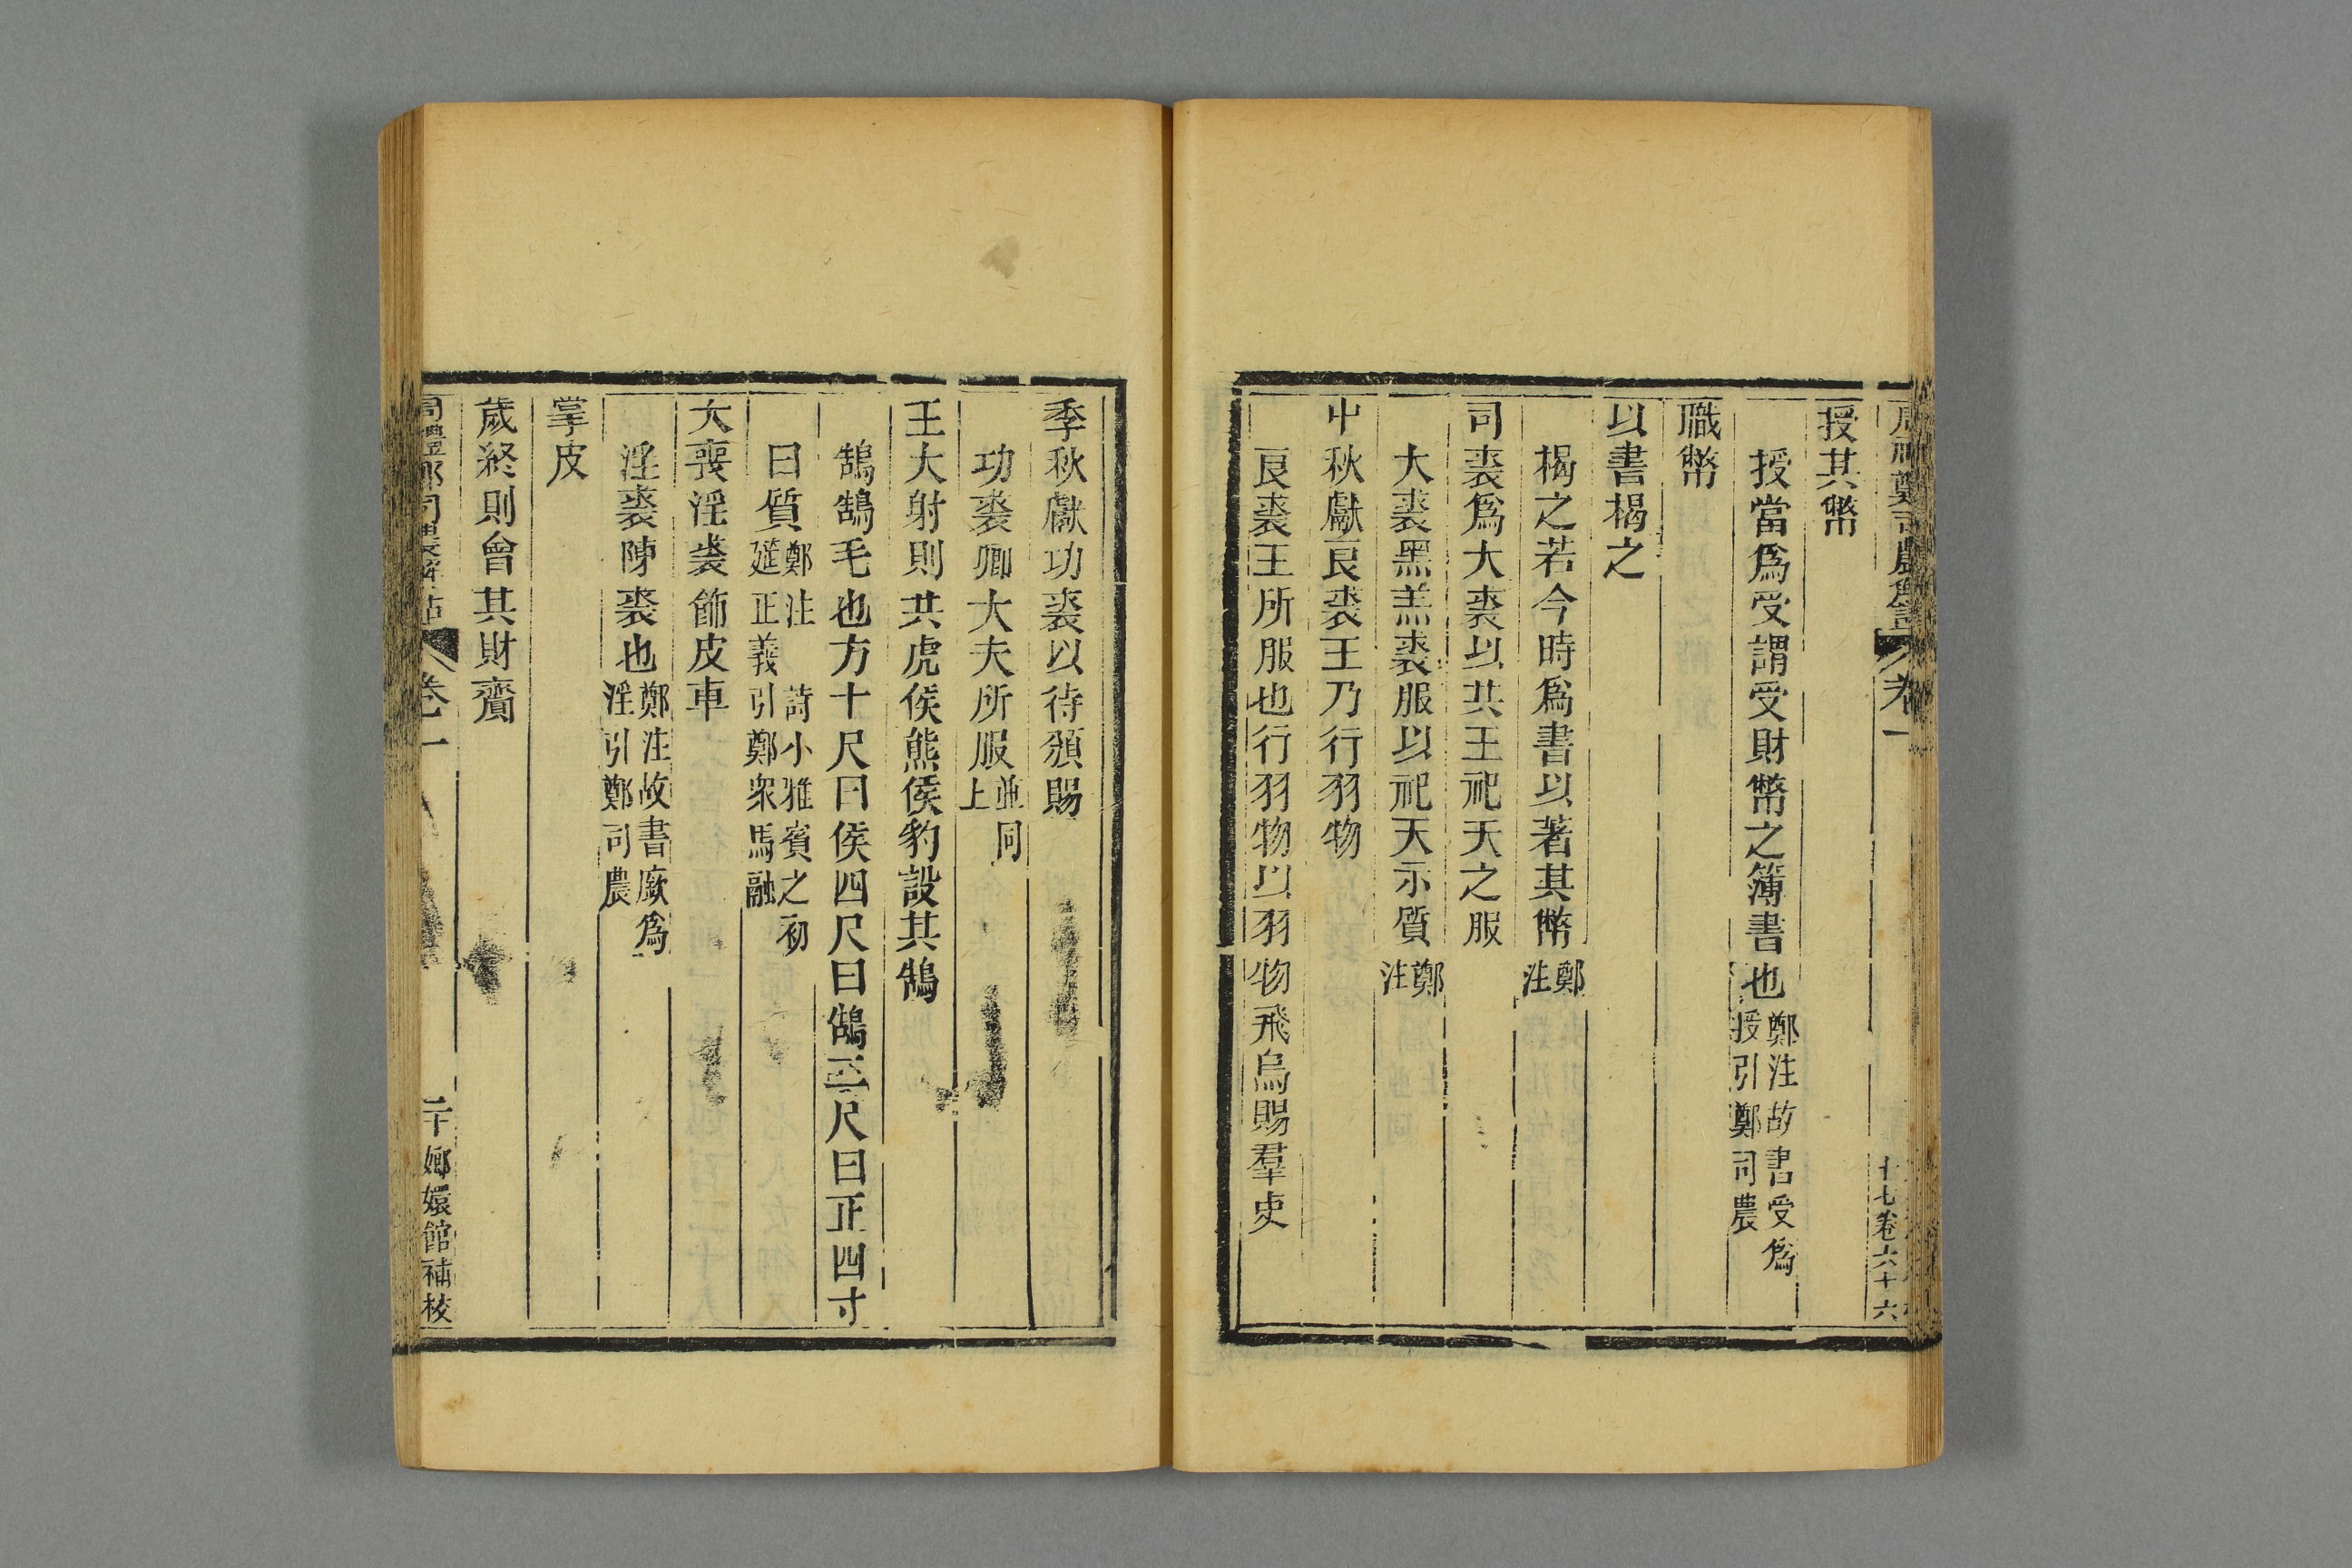 授其幣
授當爲受謂受財幣之簿書也鄭注故書受爲授引鄭司農
職幣
以書楬之
楬之若今時爲書以著其幣鄭注
司裘爲大裘以共王祀天之服
大裘黑羔裘服以祀天示質鄭注
中秋獻良裘王乃行羽物
良裘王所服也行羽物以羽物飛鳥賜羣吏
十七卷六十六
季秋獻功裘以待頒賜
功裘卿大夫所服並同上
王大射則共虎侯熊侯豹設其鵠
鵠鵠毛也方十尺曰侯四尺曰鵠二尺曰正四寸
曰質鄭注 詩小雅賓之初筵正義引鄭衆馬融
大喪淫裘飾皮車
淫裘陳裘也鄭注故書廞爲淫引鄭司農
掌皮
歲終則會其財齎
卷一
嫏嬛館補校